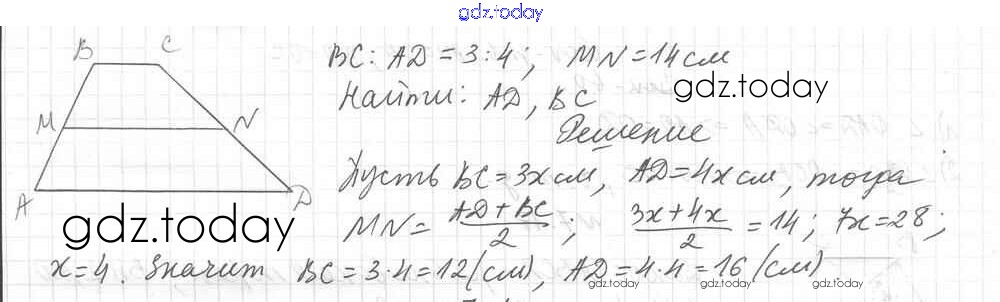 gdz.today
B C
BC : AD = 3 : 4 ; MN = 14 см
Найти: AD, BC
gdz.today
Решение
M N
Пусть BC = 3x см, AD = 4x см, тогда
A D
gdz.today
MN = (AD + BC)/2 ; (3x + 4x)/2 = 14 ; 7x = 28 ;
x = 4. Значит BC = 3·4 = 12 (см), AD = 4·4 = 16 (см)
gdz.today gdz.today
gdz.today